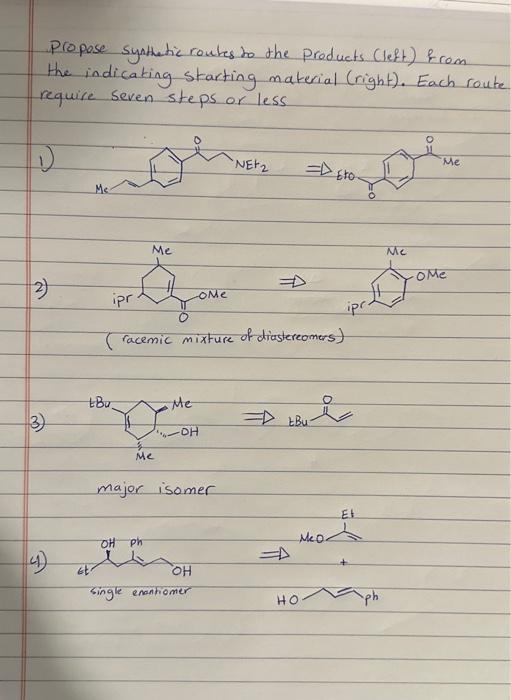 Propose synthetic routes to the products (left) from
the indicating starting material (right). Each route
require seven steps or less
1) O NEt2 Me ⇒ EtO O O Me
2) Me ipr OMe O ⇒ Me OMe ipr
(racemic mixture of diastereomers)
3) tBu Me OH Me ⇒ tBu O
major isomer
4) OH Ph Et OH ⇒ MeO Et + HO ph
single enantiomer